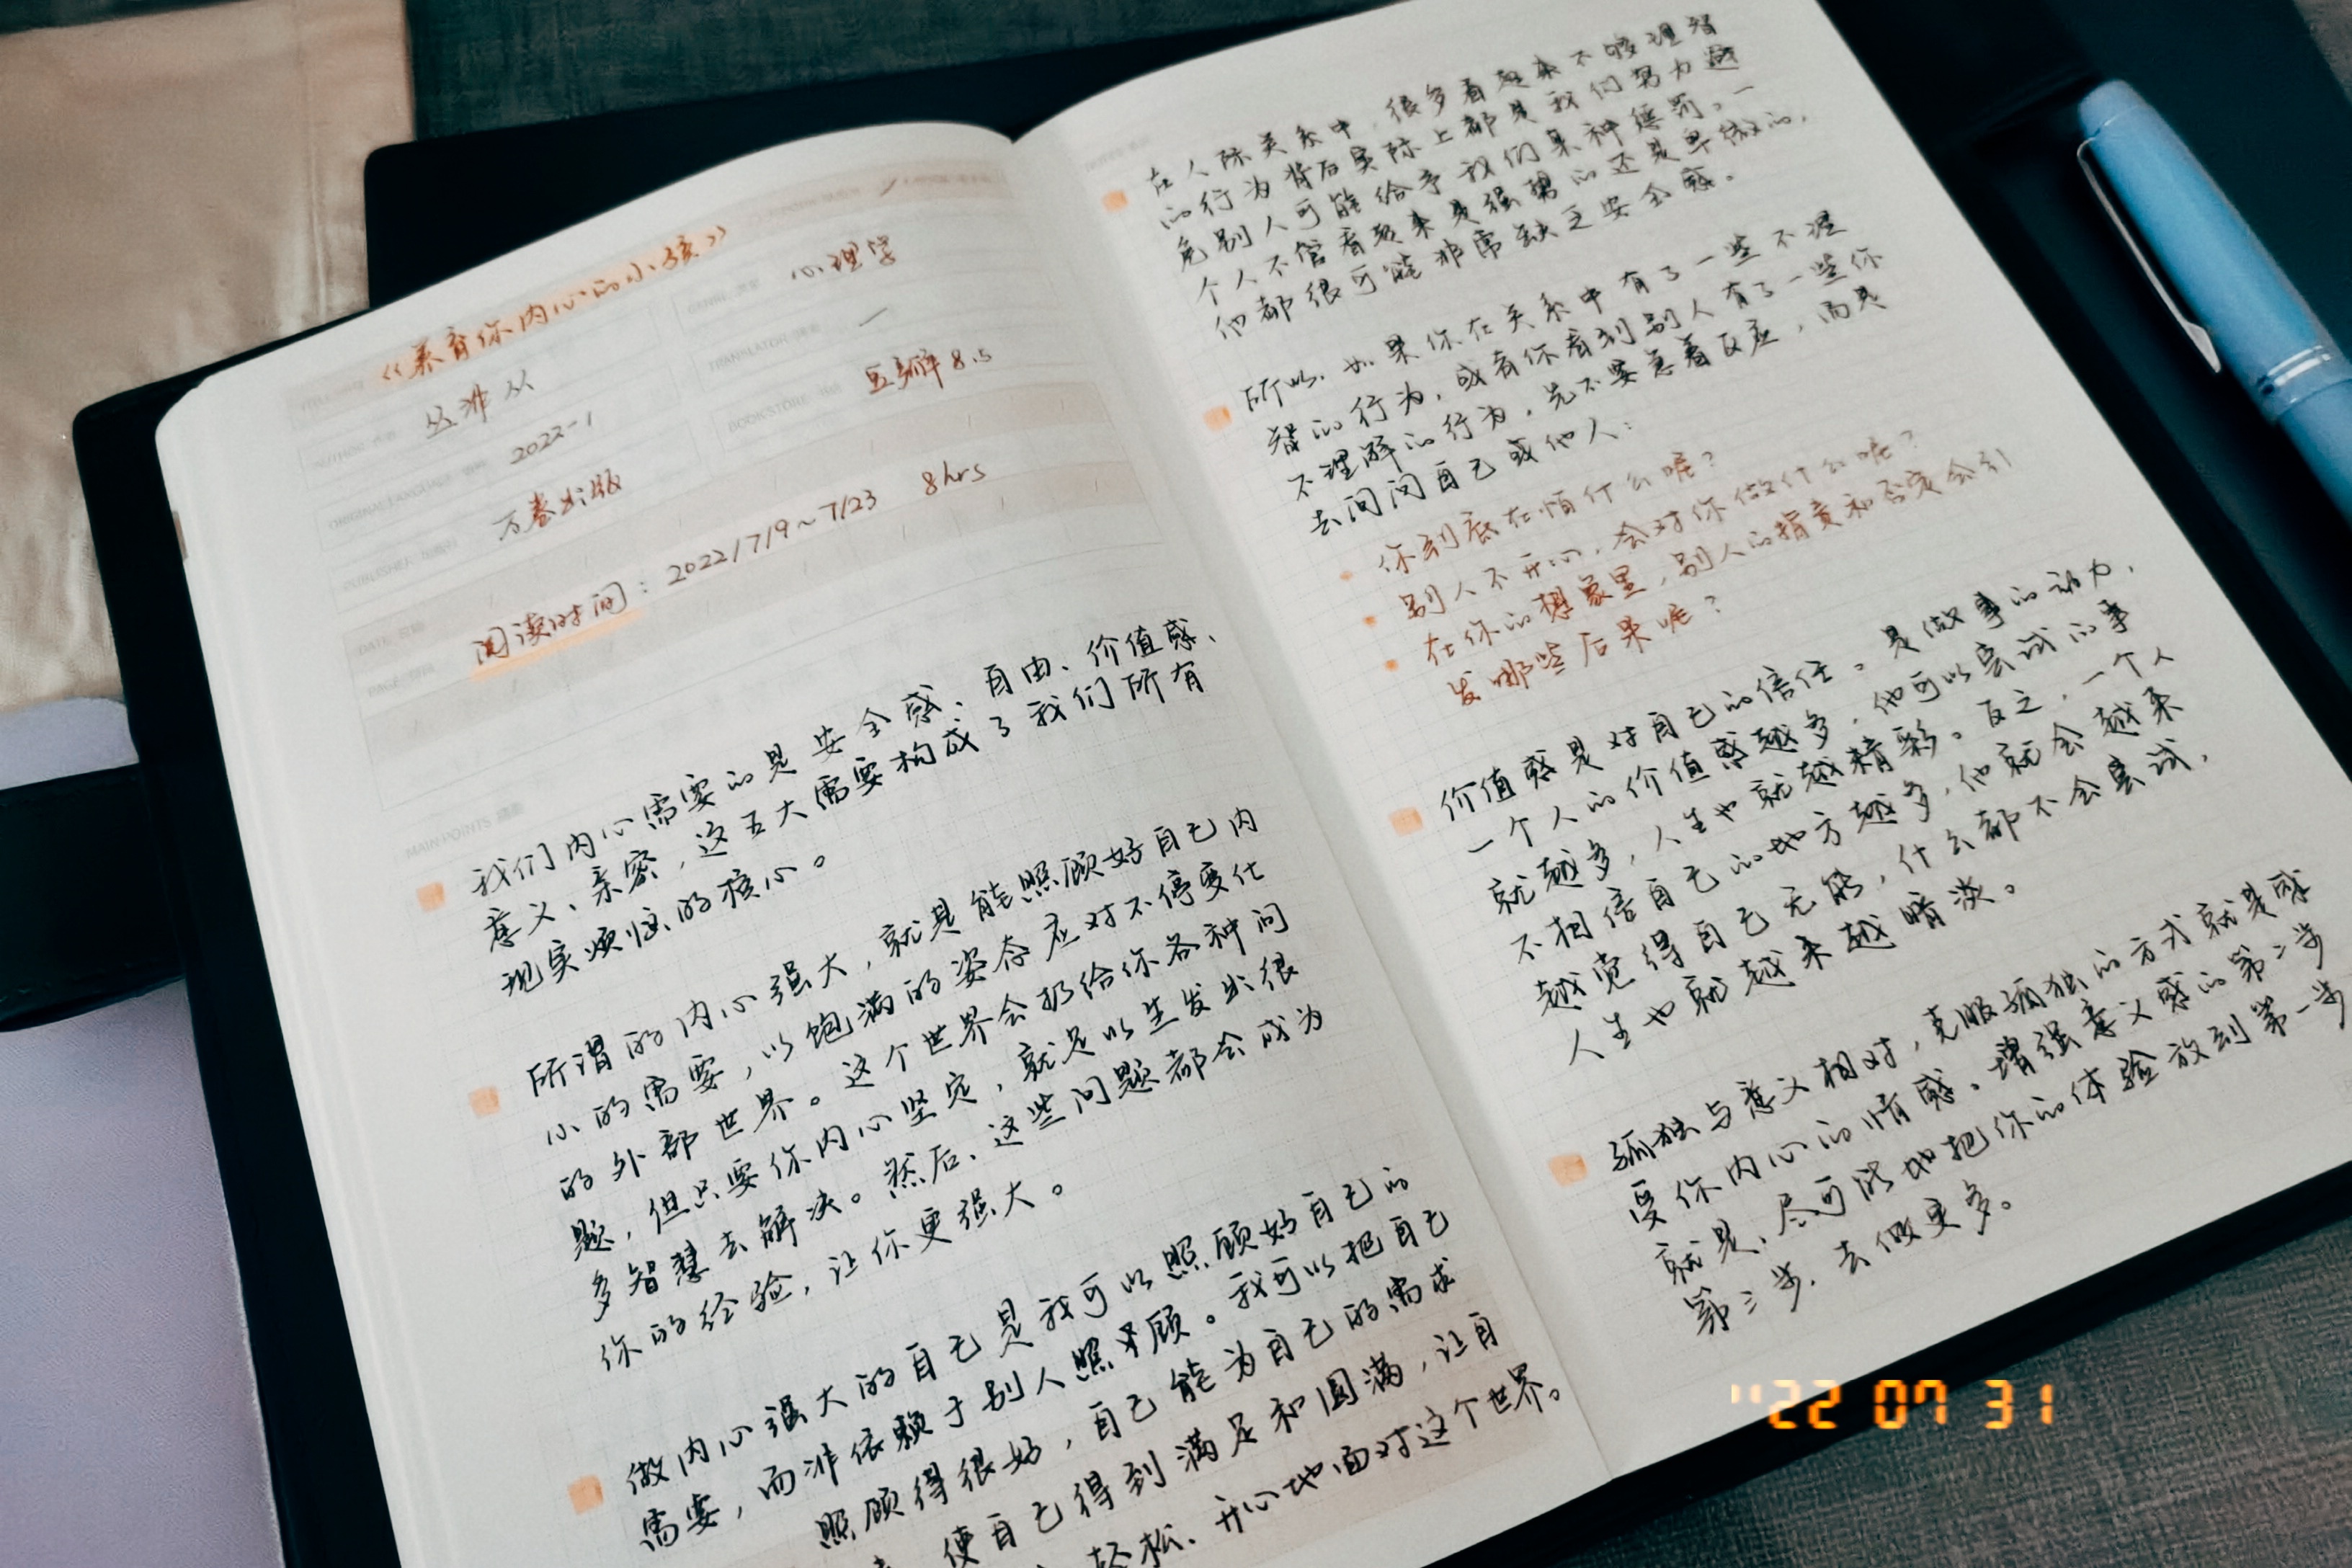 《养育你内心的小孩》
丛非从
心理学
2022-1
一
万卷出版
豆瓣 8.5
阅读时间：2022/7/9~7/23 8hrs
MAIN POINTS
我们内心需要的是安全感、自由、价值感、
意义、亲密，这五大需要构成了我们所有
现实烦恼的核心。
所谓的内心强大，就是能照顾好自己内
心的需要，以饱满的姿态应对不停变化
的外部世界。这个世界会扔给你各种问
题，但只要你内心坚定，就足以生发出很
多智慧去解决。然后、这些问题都会成为
你的经验，让你更强大。
做内心强大的自己是我可以照顾好自己的
需要，而非依赖于别人照顾。我可以把自己
照顾得很好，自己能为自己的需求
使自己得到满足和圆满，让自
轻松、开心地面对这个世界。
在人际关系中，很多看起来不够理智
的行为背后实际上都是我们努力避
免别人可能给予我们某种惩罚。一
个人不管看起来是强势的还是卑微的，
他都很可能非常缺乏安全感。
所以、如果你在关系中有了一些不理
智的行为，或者你看到别人有了一些你
不理解的行为，先不要急着反应，而是
去问问自己或他人：
你到底在怕什么呢？
别人不开心，会对你做什么呢？
在你的想象里，别人的指责和否定会引
发哪些后果呢？
价值感是对自己的信任。是做事的动力，
一个人的价值感越多，他可以尝试的事
就越多，人生也就越精彩。反之，一个人
不相信自己的地方越多，他就会越来
越觉得自己无能，什么都不会尝试，
人生也就越来越暗淡。
孤独与意义相对，克服孤独的方式就是感
受你内心的情感。增强意义感的第二步
就是、尽可能地把你的体验放到第一步
第三步、去做更多。
'22 07 31